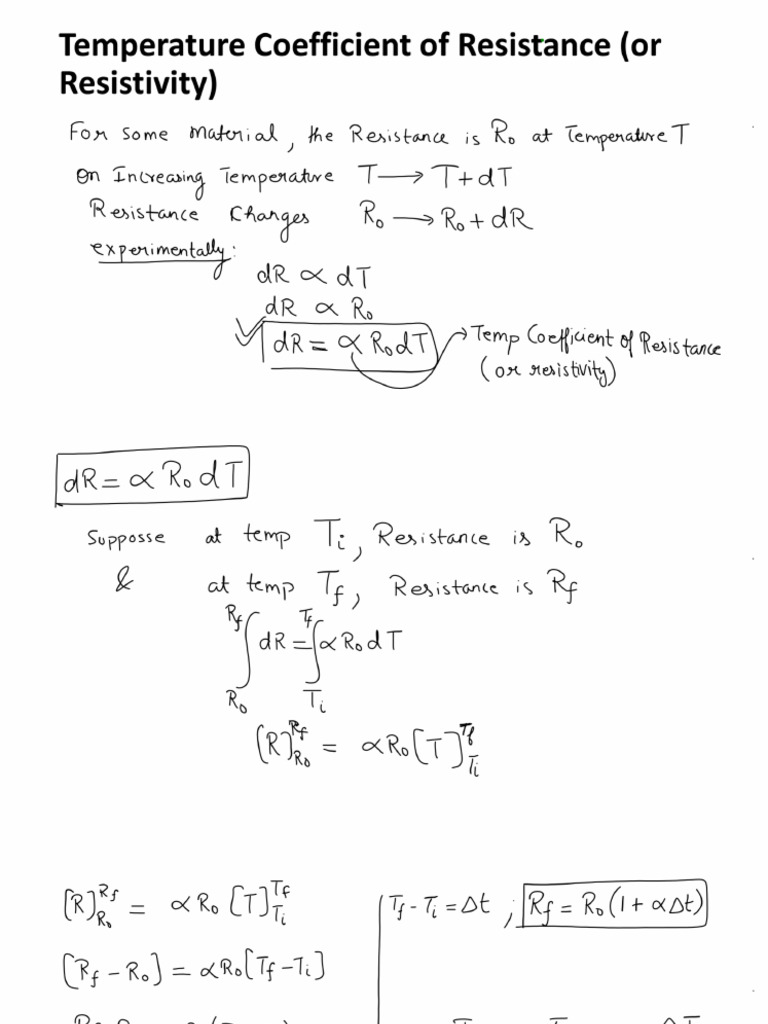 Temperature Coefficient of Resistance (or
Resistivity)
For some material, the Resistance is R₀ at Temperature T
On Increasing Temperature T ⟶ T+dT
Resistance Changes R₀ ⟶ R₀ + dR
experimentally:
dR ∝ dT
dR ∝ R₀
✓ dR = ∝ R₀ dT → Temp Coefficient of Resistance
(or resistivity)
dR = ∝ R₀ dT
Supposse at temp Tᵢ, Resistance is R₀
& at temp T_f, Resistance is R_f
∫_{R₀}^{R_f} dR = ∫_{Tᵢ}^{T_f} ∝ R₀ dT
(R)_{R₀}^{R_f} = ∝ R₀ [T]_{Tᵢ}^{T_f}
[R]_{R₀}^{R_f} = ∝ R₀ [T]_{Tᵢ}^{T_f}
T_f - Tᵢ = Δt ; R_f = R₀ (1 + ∝Δt)
(R_f - R₀) = ∝R₀[T_f - Tᵢ]